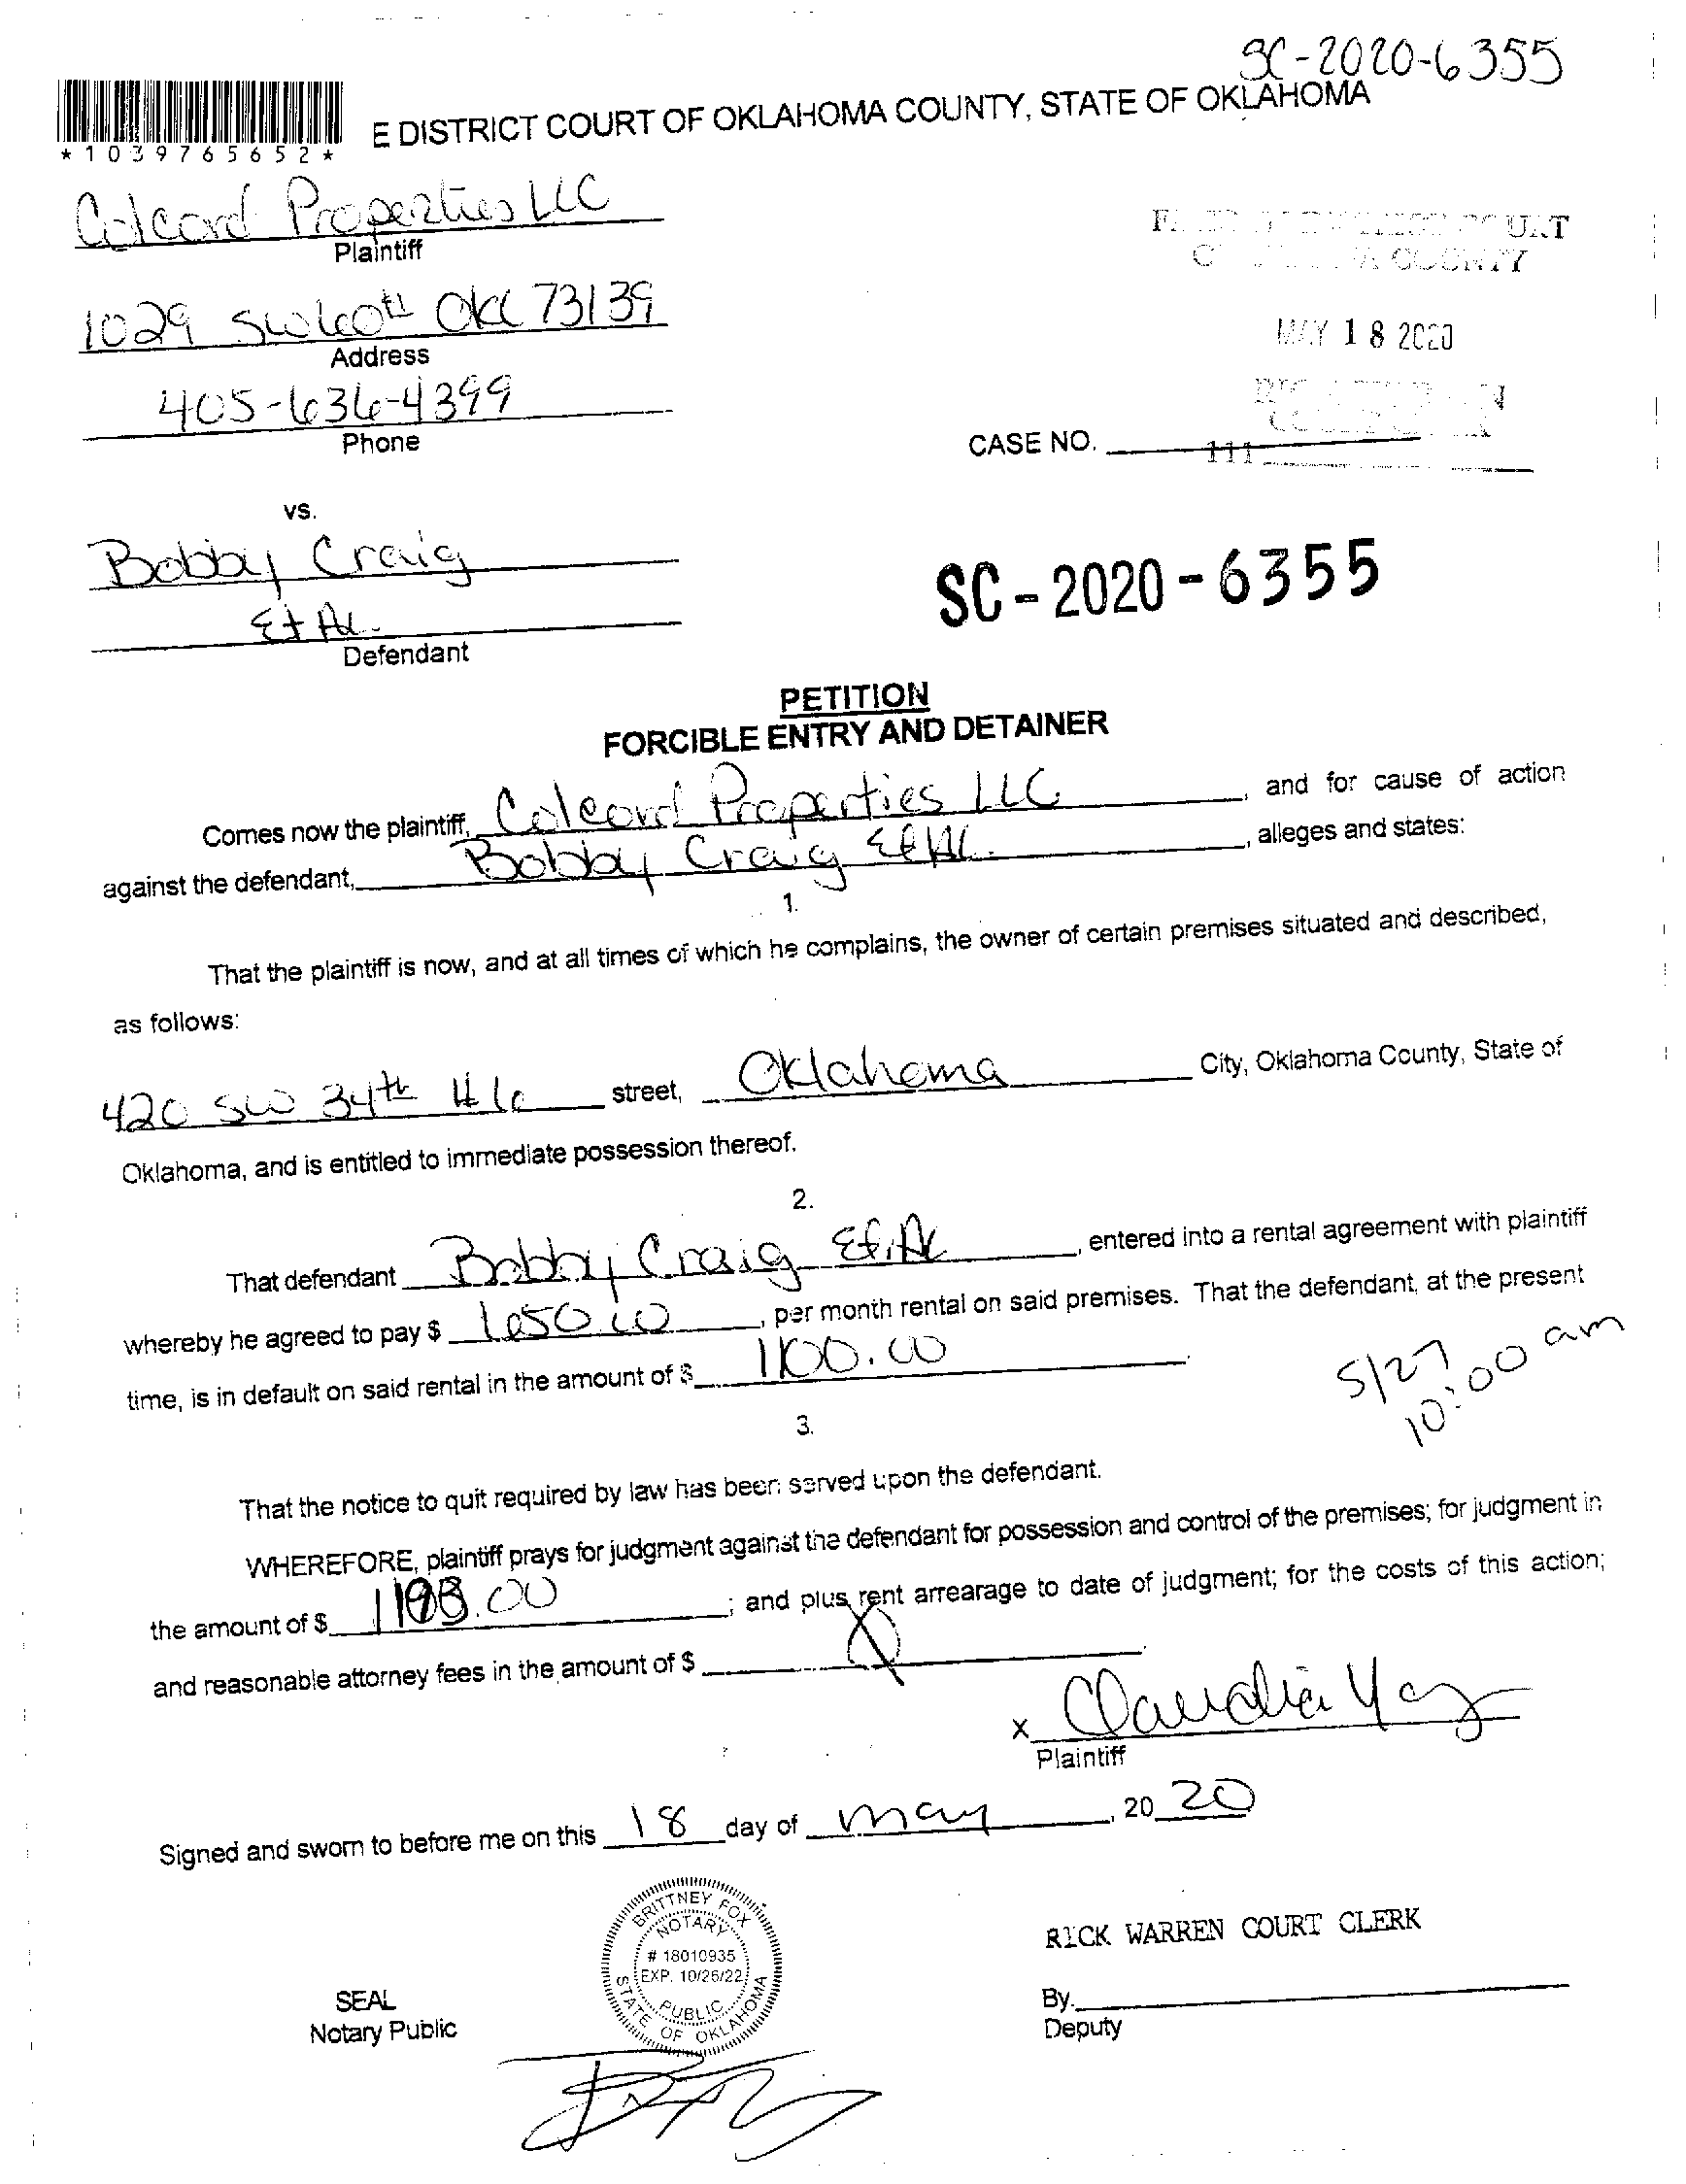 SC-2020-6355
E DISTRICT COURT OF OKLAHOMA COUNTY, STATE OF OKLAHOMA
*1039765652*
Colcord Properties LLC
Plaintiff
COUNTY
1029 SW 60th OKC 73139
Address
MAY 18 2020
405-636-4399
Phone
CASE NO.
111
vs.
Bobby Craig
Et Al.
Defendant
SC-2020-6355
PETITION
FORCIBLE ENTRY AND DETAINER
Comes now the plaintiff, Colcord Properties LLC, and for cause of action
against the defendant, Bobby Craig Et Al., alleges and states:
1.
That the plaintiff is now, and at all times of which he complains, the owner of certain premises situated and described,
as follows:
420 SW 34th #6 street, Oklahoma City, Oklahoma County, State of
Oklahoma, and is entitled to immediate possession thereof.
2.
That defendant Bobby Craig Et. Al, entered into a rental agreement with plaintiff
whereby he agreed to pay $ 650.00, per month rental on said premises. That the defendant, at the present
time, is in default on said rental in the amount of $ 1100.00
5/27
10:00 am
3.
That the notice to quit required by law has been served upon the defendant.
WHEREFORE, plaintiff prays for judgment against the defendant for possession and control of the premises; for judgment in
the amount of $ .00; and plus rent arrearage to date of judgment; for the costs of this action;
and reasonable attorney fees in the amount of $
x Claudia
Plaintiff
Signed and sworn to before me on this 18 day of may, 20 20
BRITTNEY FOX
NOTARY
# 18010935
EXP. 10/26/22
PUBLIC
STATE OF OKLAHOMA
SEAL
Notary Public
RICK WARREN COURT CLERK
By
Deputy